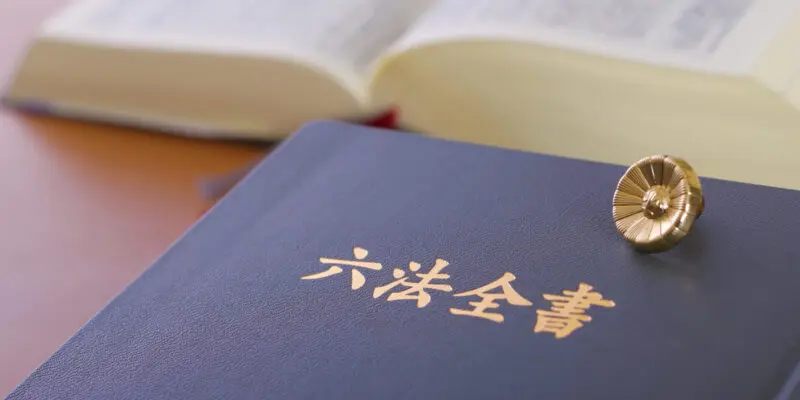 六法全書